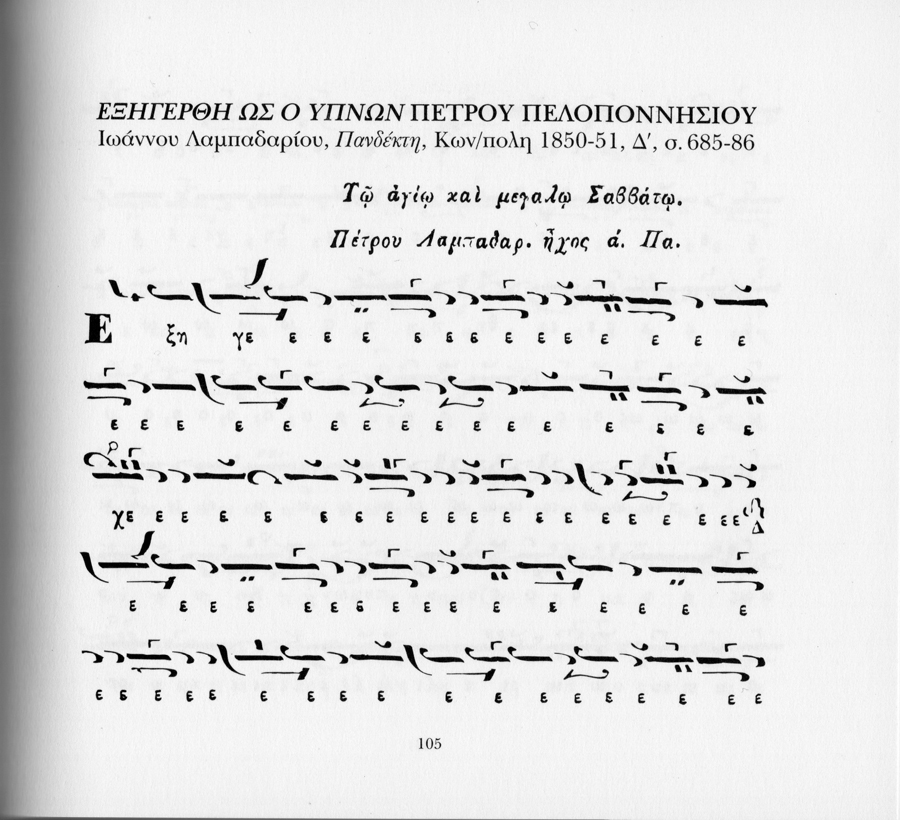 ΕΞΗΓΕΡΘΗ ΩΣ Ο ΥΠΝΩΝ ΠΕΤΡΟΥ ΠΕΛΟΠΟΝΝΗΣΙΟΥ
Ιωάννου Λαμπαδαρίου, Πανδέκτη, Κων/πολη 1850-51, Δ', σ. 685-86
Τῷ ἁγίῳ καὶ μεγαλῳ Σαββάτῳ.
Πέτρου Λαμπαδαρ. ἦχος ά. Πα.
Ε ξη γε ε ε ε ε ε ε ε ε ε ε ε ε ε
ε ε ε ε ε ε ε ε ε ε ε ε ε ε ε ε
χε ε ε ε ε ε ε ε ε ε ε ε ε ε ε ε ε ε ε ε Δ
ε ε ε ε ε ε ε ε ε ε ε ε ε ε ε
ε ε ε ε ε ε ε ε ε ε ε ε ε ε ε ε ε
105